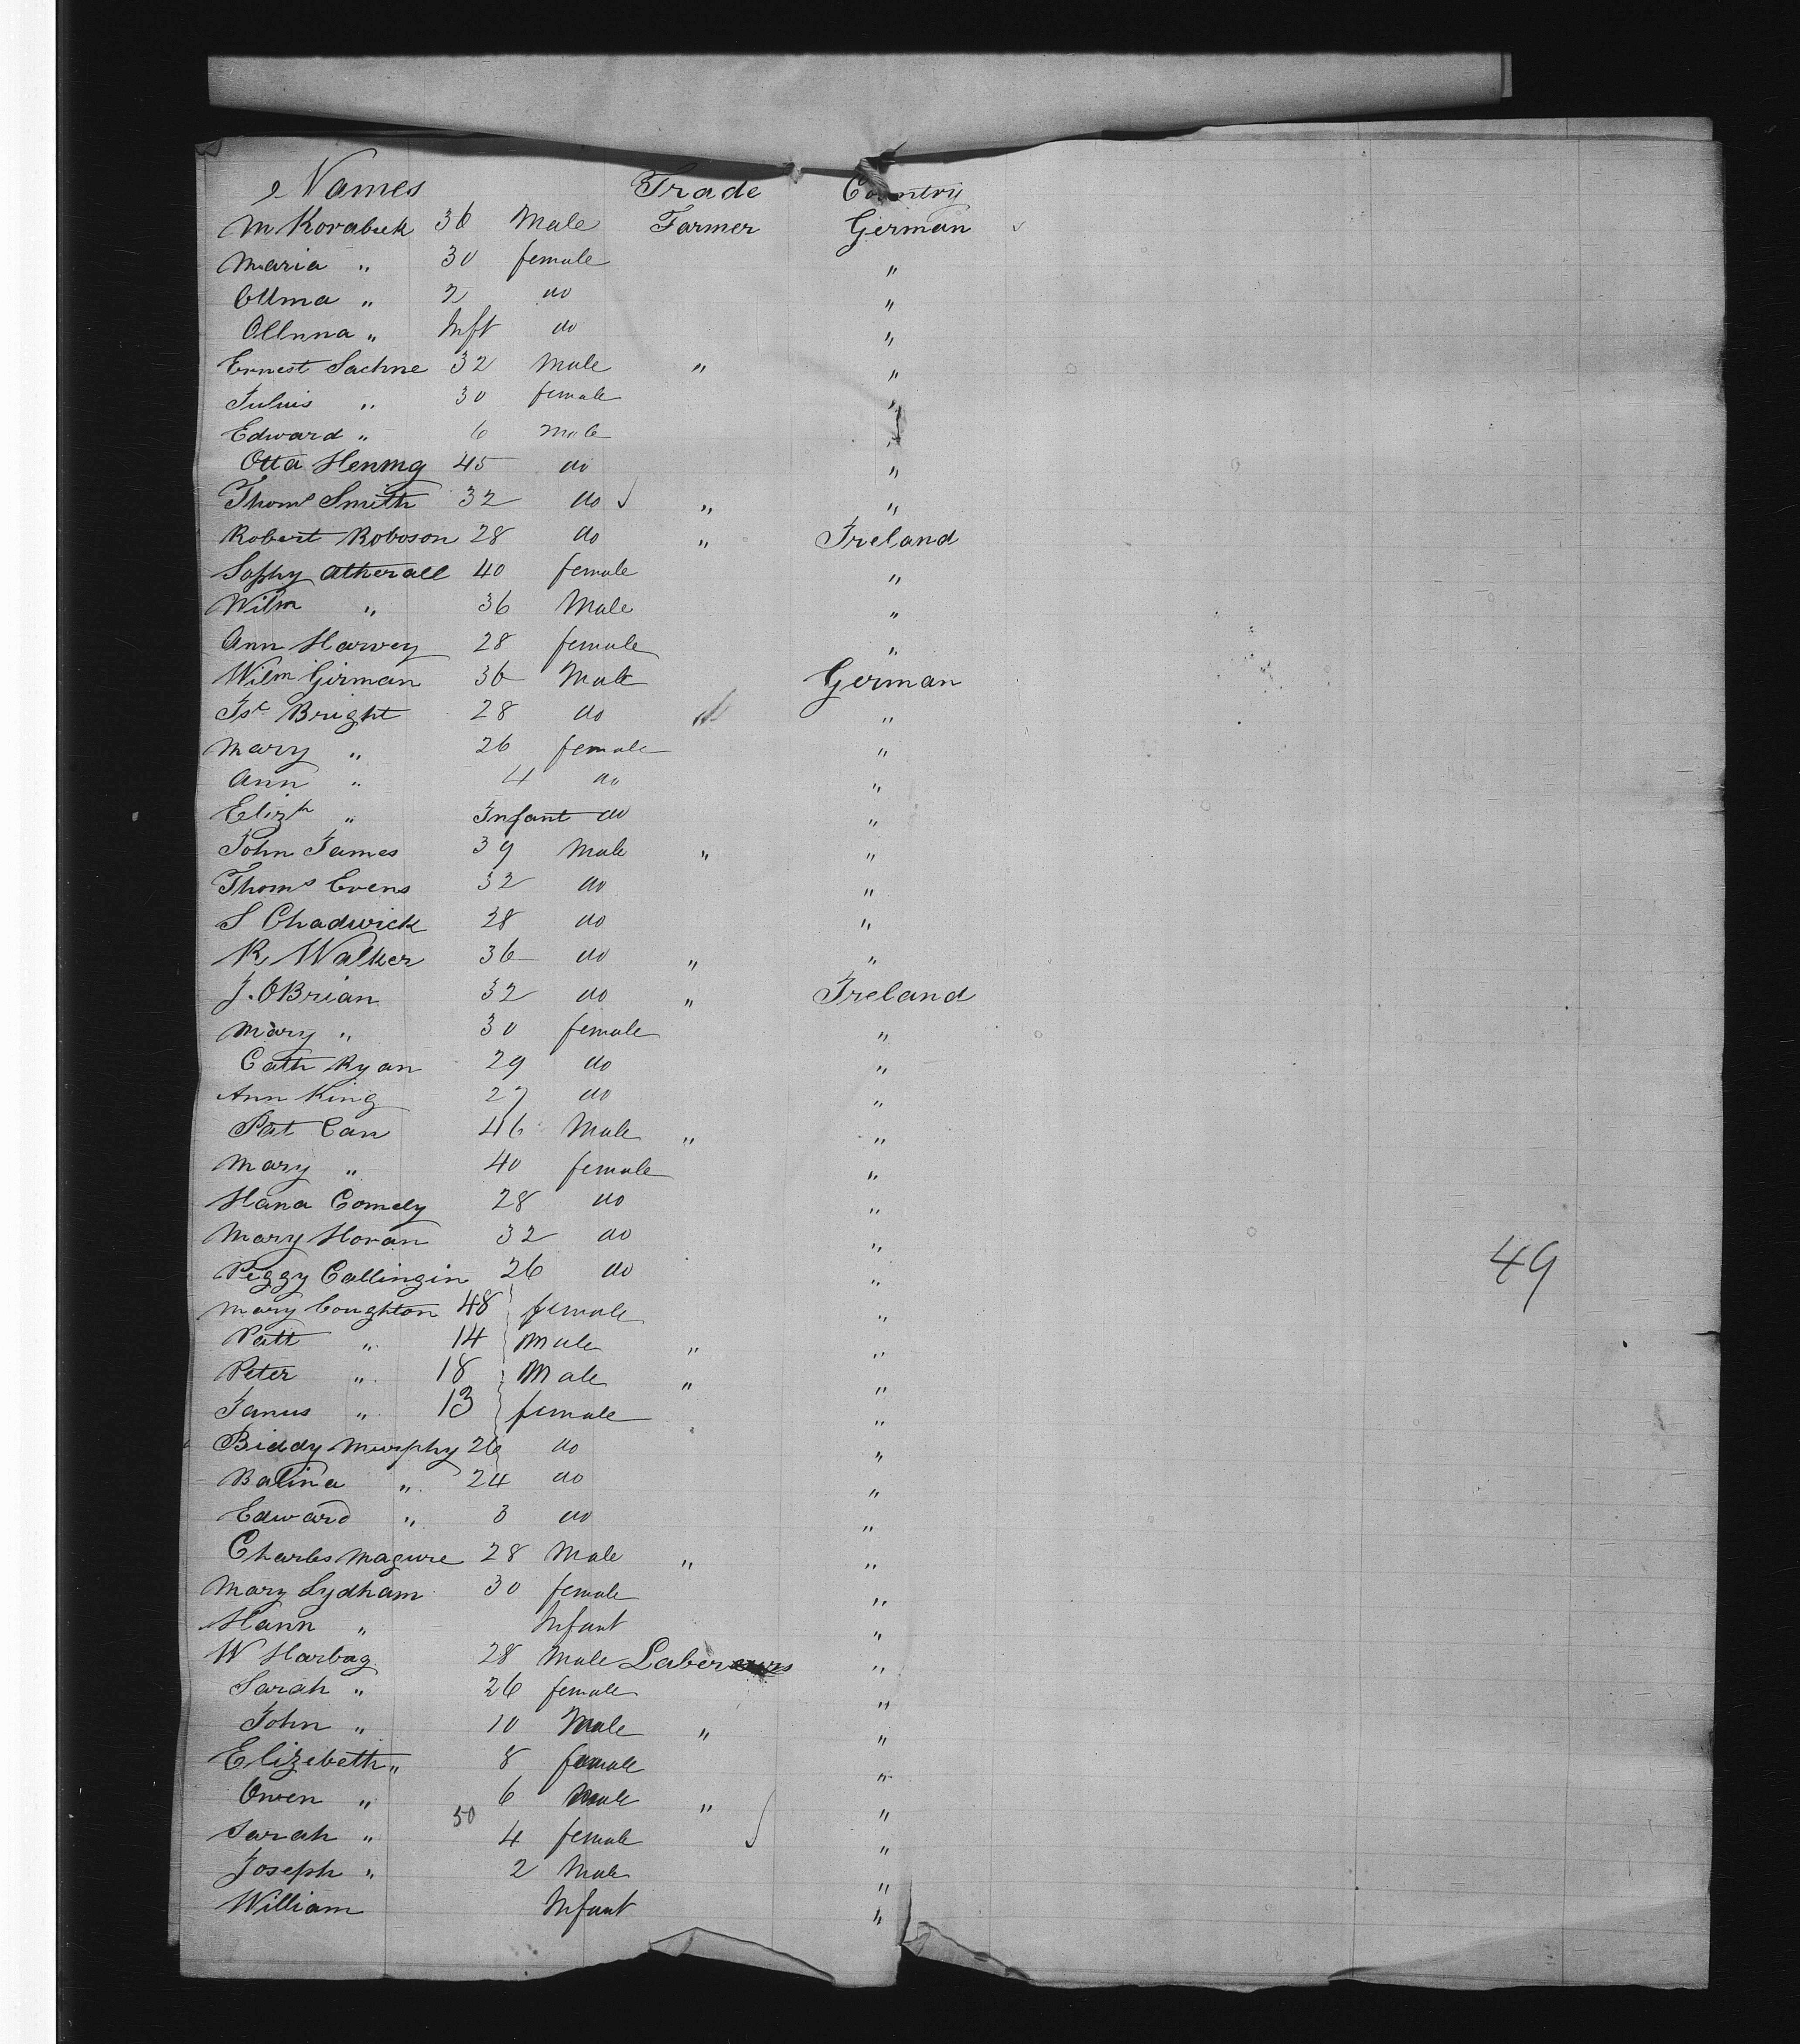 Names Trade Country
M Korabuk 36 Male Farmer German
Maria " 30 female "
Ottma " 2 do "
Ollnna " Inft do "
Ernest Sachne 32 Male " "
Julius " 30 female "
Edward " 6 Male "
Otta Hening 45 do "
Thoms Smith 32 do " "
Robert Roboson 28 do " Ireland
Sophy Atherall 40 female "
Wilm " 36 Male "
Ann Harvey 28 female "
Wilm Girman 36 Male German
Jsc Bright 28 do "
Mary " 26 female "
Ann " 4 do "
Elizh " Infant do "
John James 39 Male " "
Thoms Evens 32 do "
S Chadwick 28 do "
R Walker 36 do " "
J. OBrian 32 do " Ireland
Mary " 30 female "
Cath Ryan 29 do "
Ann King 27 do "
Pat Can 46 Male " "
Mary " 40 female "
Hana Comely 28 do "
Mary Horan 32 do "
Peggy Callingin 26 do "
49
Mary Coughton 48 female "
Patt " 14 Male " "
Peter " 18 Male " "
Janus " 13 female "
Biddy Murphy 26 do "
Balina " 24 do "
Edward " 3 do "
Charles Magure 28 Male " "
Mary Lydham 30 female "
Hann " Infant "
W Harbag 28 Male Laberours "
Sarah " 26 female "
John " 10 Male " "
Elizebeth " 8 female "
Owen " 6 Male " "
50
Sarah " 4 female "
Joseph " 2 Male "
William Infant "